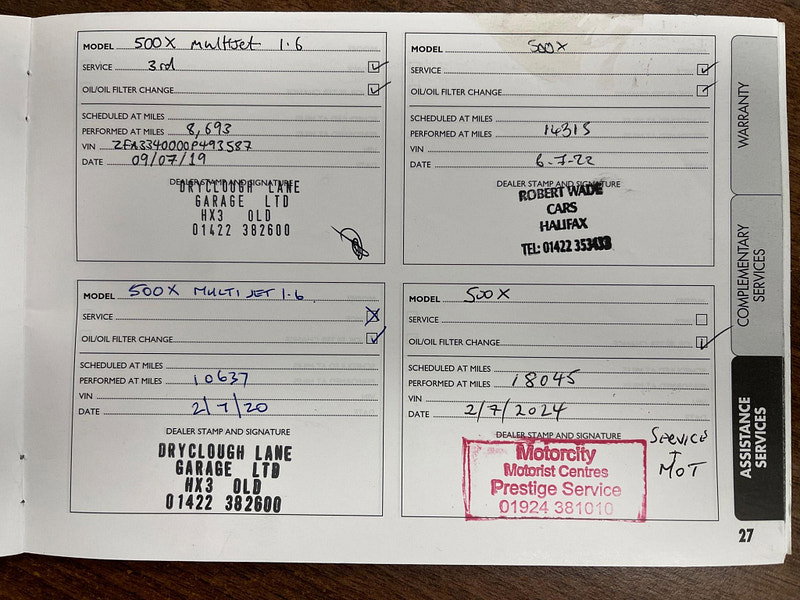 MODEL 500X Multijet 1.6
SERVICE 3rd
OIL/OIL FILTER CHANGE
SCHEDULED AT MILES
PERFORMED AT MILES 8,693
VIN ZFA3340000P493587
DATE 09/07/19
DEALER STAMP AND SIGNATURE
DRYCLOUGH LANE
GARAGE LTD
HX3 0LD
01422 382600
MODEL 500X
SERVICE
OIL/OIL FILTER CHANGE
SCHEDULED AT MILES
PERFORMED AT MILES 14315
VIN
DATE 6-7-22
DEALER STAMP AND SIGNATURE
ROBERT WADE
CARS
HALIFAX
TEL: 01422 353433
MODEL 500X MULTIJET 1.6
SERVICE
OIL/OIL FILTER CHANGE
SCHEDULED AT MILES
PERFORMED AT MILES 10637
VIN
DATE 2/7/20
DEALER STAMP AND SIGNATURE
DRYCLOUGH LANE
GARAGE LTD
HX3 0LD
01422 382600
MODEL 500X
SERVICE
OIL/OIL FILTER CHANGE
SCHEDULED AT MILES
PERFORMED AT MILES 18045
VIN
DATE 2/7/2024
DEALER STAMP AND SIGNATURE
Motorcity
Motorist Centres
Prestige Service
01924 381010
SERVICE
+
MOT
WARRANTY
COMPLEMENTARY
SERVICES
ASSISTANCE
SERVICES
27